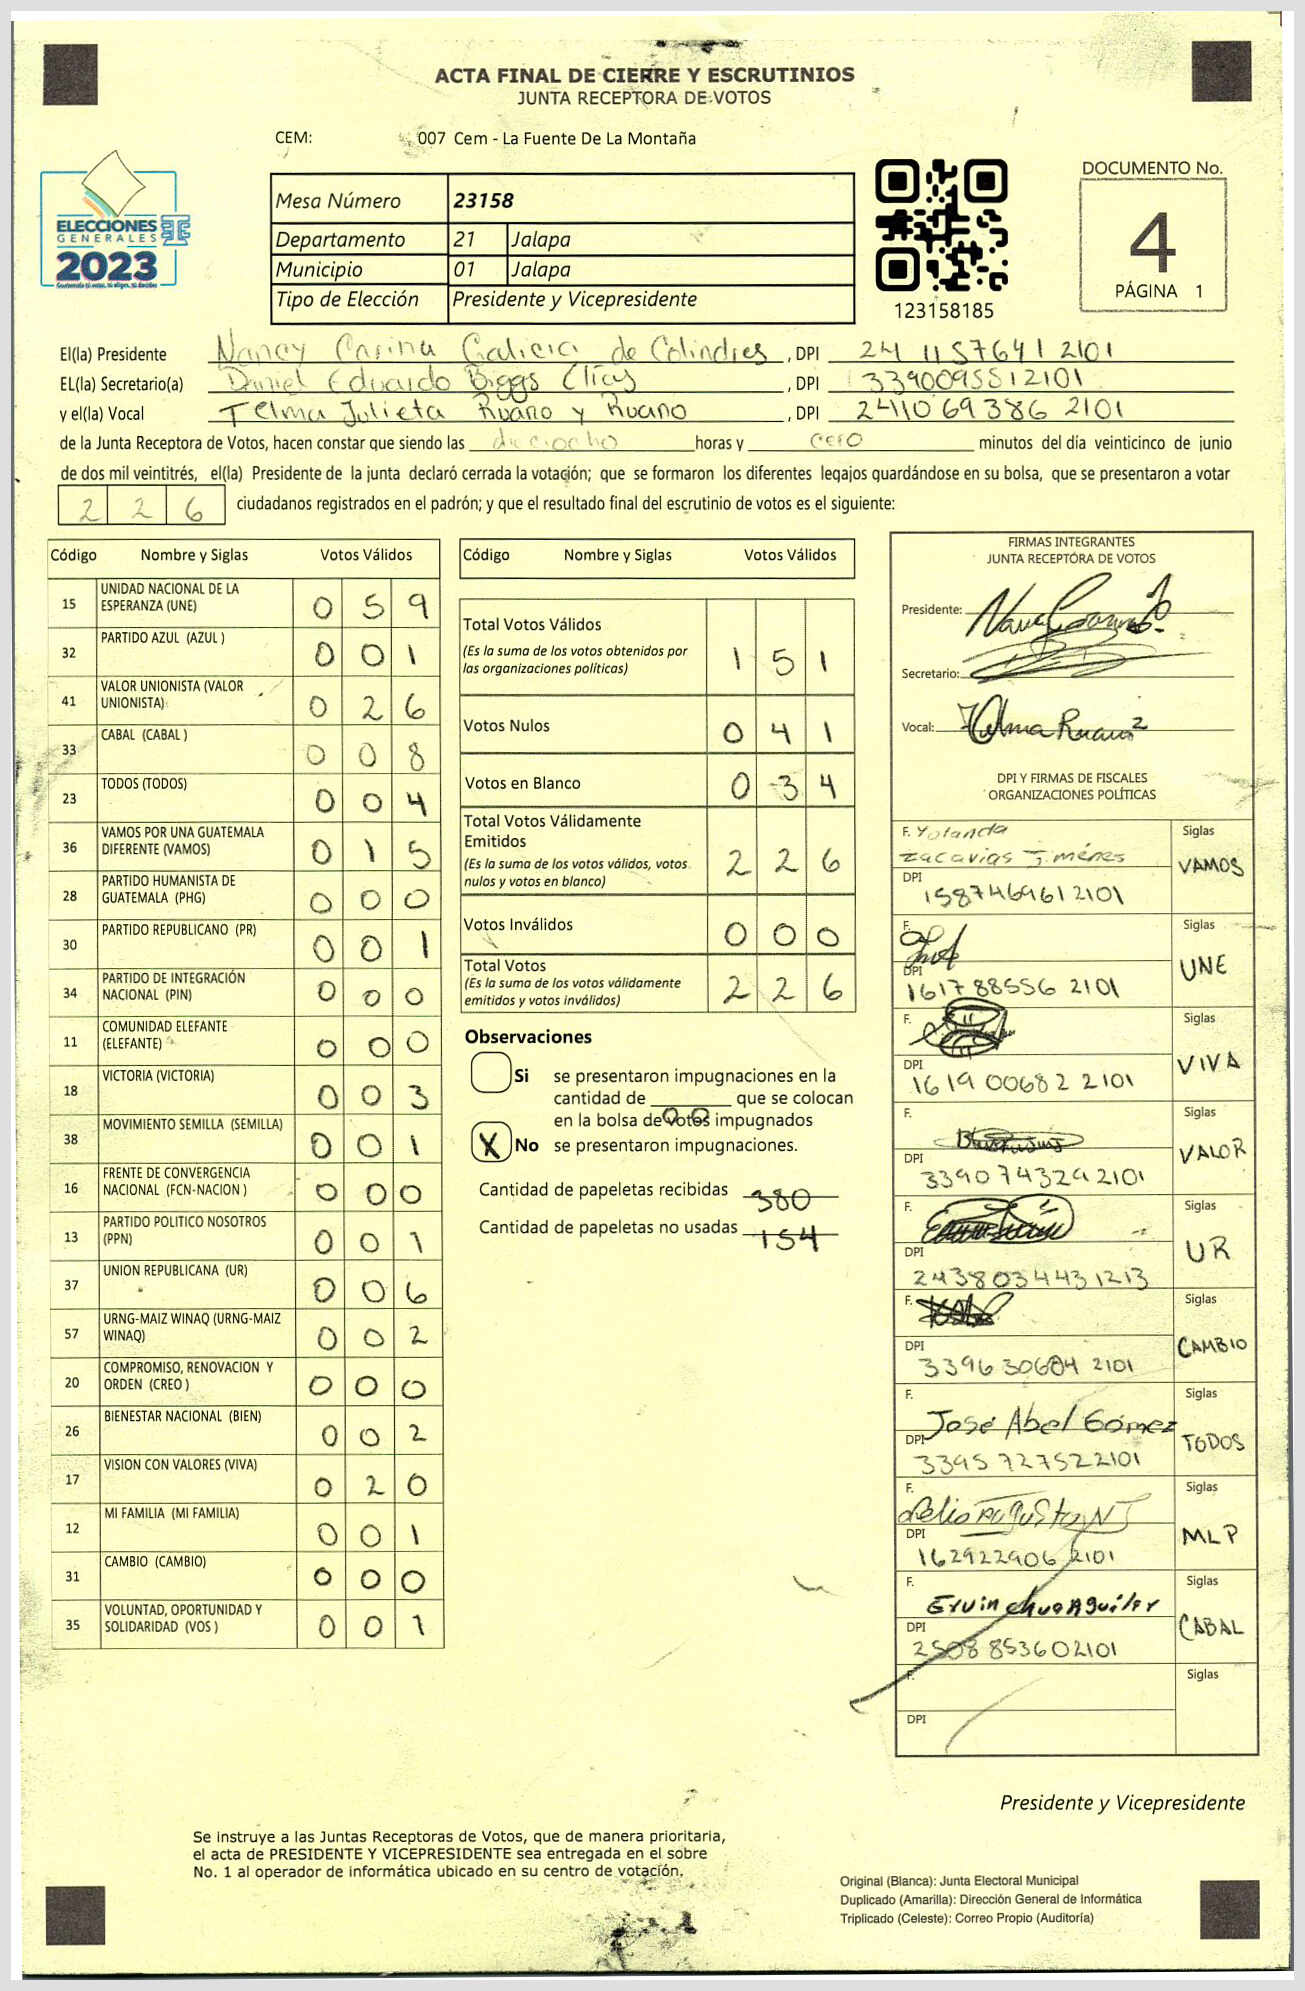 ACTA FINAL DE CIERRE Y ESCRUTINIOS
JUNTA RECEPTORA DE VOTOS
CEM: 007 Cem - La Fuente De La Montaña
ELECCIONES
GENERALES
2023
Mesa Número 23158
Departamento 21 Jalapa
Municipio 01 Jalapa
Tipo de Elección Presidente y Vicepresidente
123158185
DOCUMENTO No.
4
PÁGINA 1
El(la) Presidente Nancy Carina Galicia de Colindres, DPI 24 11576412101
EL(la) Secretario(a) Daniel Eduardo Biggs Elias, DPI 3390095512101
y el(la) Vocal Telma Julieta Ruano y Ruano, DPI 2411069386 2101
de la Junta Receptora de Votos, hacen constar que siendo las dieciocho horas y cero minutos del día veinticinco de junio
de dos mil veintitrés, el(la) Presidente de la junta declaró cerrada la votación; que se formaron los diferentes legajos guardándose en su bolsa, que se presentaron a votar
2 2 6 ciudadanos registrados en el padrón; y que el resultado final del escrutinio de votos es el siguiente:
Código Nombre y Siglas Votos Válidos
15 UNIDAD NACIONAL DE LA ESPERANZA (UNE) 0 5 9
32 PARTIDO AZUL (AZUL ) 0 0 1
41 VALOR UNIONISTA (VALOR UNIONISTA) 0 2 6
33 CABAL (CABAL ) 0 0 8
23 TODOS (TODOS) 0 0 4
36 VAMOS POR UNA GUATEMALA DIFERENTE (VAMOS) 0 1 5
28 PARTIDO HUMANISTA DE GUATEMALA (PHG) 0 0 0
30 PARTIDO REPUBLICANO (PR) 0 0 1
34 PARTIDO DE INTEGRACIÓN NACIONAL (PIN) 0 0 0
11 COMUNIDAD ELEFANTE (ELEFANTE) 0 0 0
18 VICTORIA (VICTORIA) 0 0 3
38 MOVIMIENTO SEMILLA (SEMILLA) 0 0 1
16 FRENTE DE CONVERGENCIA NACIONAL (FCN-NACION ) 0 0 0
13 PARTIDO POLITICO NOSOTROS (PPN) 0 0 1
37 UNION REPUBLICANA (UR) 0 0 6
57 URNG-MAIZ WINAQ (URNG-MAIZ WINAQ) 0 0 2
20 COMPROMISO, RENOVACION Y ORDEN (CREO ) 0 0 0
26 BIENESTAR NACIONAL (BIEN) 0 0 2
17 VISION CON VALORES (VIVA) 0 2 0
12 MI FAMILIA (MI FAMILIA) 0 0 1
31 CAMBIO (CAMBIO) 0 0 0
35 VOLUNTAD, OPORTUNIDAD Y SOLIDARIDAD (VOS ) 0 0 1
Código Nombre y Siglas Votos Válidos
Total Votos Válidos
(Es la suma de los votos obtenidos por
las organizaciones políticas) 1 5 1
Votos Nulos 0 4 1
Votos en Blanco 0 3 4
Total Votos Válidamente
Emitidos
(Es la suma de los votos válidos, votos
nulos y votos en blanco) 2 2 6
Votos Inválidos 0 0 0
Total Votos
(Es la suma de los votos válidamente
emitidos y votos inválidos) 2 2 6
Observaciones
Si se presentaron impugnaciones en la
cantidad de ________ que se colocan
en la bolsa de votos impugnados
00
X No se presentaron impugnaciones.
Cantidad de papeletas recibidas 380
Cantidad de papeletas no usadas 154
FIRMAS INTEGRANTES
JUNTA RECEPTORA DE VOTOS
Presidente:
Secretario:
Vocal: Telma Ruano
DPI Y FIRMAS DE FISCALES
ORGANIZACIONES POLÍTICAS
F. Yolanda Siglas
zacarias Jiménes VAMOS
DPI 1587469612101
F. Siglas
UNE
DPI 1617 88556 2101
F. Siglas
VIVA
DPI 1619 00682 2101
F. Siglas
VALOR
DPI 3390743292101
F. Siglas
UR
DPI 2438034431213
F. Siglas
CAMBIO
DPI 339630684 2101
F. José Abel Gómez Siglas
TODOS
DPI 3395 727522101
F. Siglas
MLP
DPI 162922906 2101
F. Ervin Siglas
CABAL
DPI 2508853602101
F. Siglas
DPI
Presidente y Vicepresidente
Se instruye a las Juntas Receptoras de Votos, que de manera prioritaria,
el acta de PRESIDENTE Y VICEPRESIDENTE sea entregada en el sobre
No. 1 al operador de informática ubicado en su centro de votación.
Original (Blanca): Junta Electoral Municipal
Duplicado (Amarilla): Dirección General de Informática
Triplicado (Celeste): Correo Propio (Auditoría)